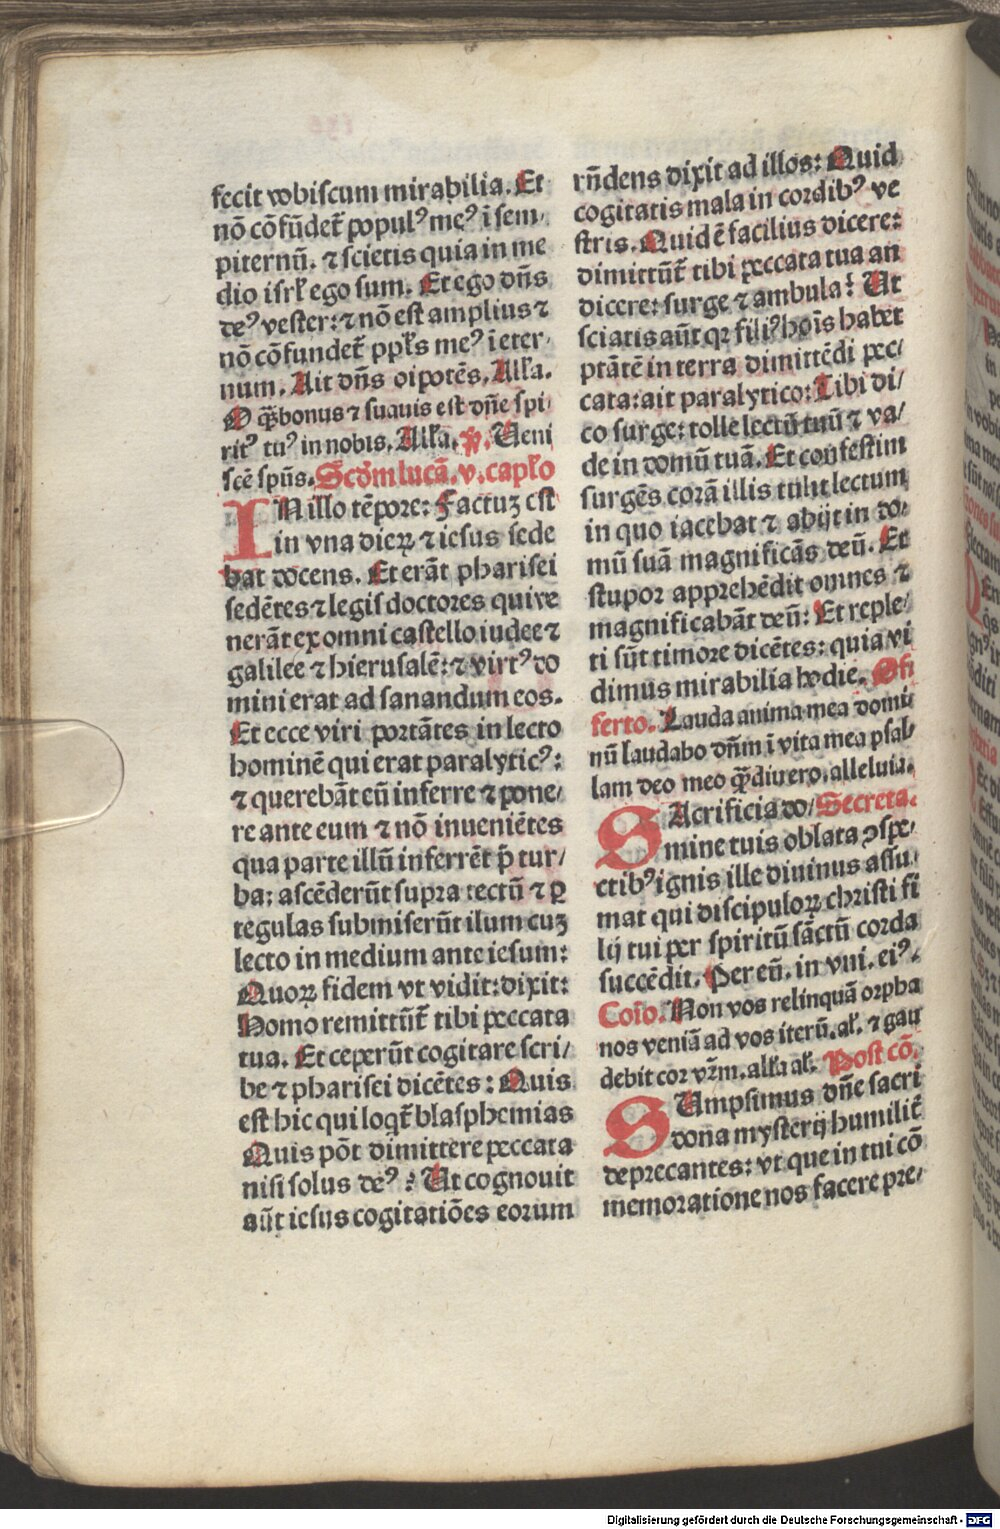 fecit vobiscum mirabilia. Et
nō cōfūdet̄ popul⁹ me⁹ ī sem-
piternū. ⁊ scietis quia in me
dio isrl̄ ego sum. Et ego dn̄s
de⁹ vester: ⁊ nō est amplius ⁊
nō cōfundet̄ ppl̄s me⁹ ī eter-
num. Ait dn̄s oīpotēs. All̄a.
O q̄̃bonus ⁊ suauis est dn̄e spi-
rit⁹ tu⁹ in nobis. All̄a. ꝟ. Veni
scē spūs. Scd̄m lucā. v. capl̄o
IN illo tēpore: Factuꝫ est
in vna dieꝝ ⁊ iesus sede
bat docens. Et erāt pharisei
sedētes ⁊ legis doctores qui ve
nerāt ex omni castello iudee ⁊
galilee ⁊ hierusalē: ⁊ virt⁹ do
mini erat ad sanandum eos.
Et ecce viri portātes in lecto
hominē qui erat paralytic⁹:
⁊ querebāt eū inferre ⁊ pone/
re ante eum ⁊ nō inueniētes
qua parte illū inferrēt p̄ tur/
ba: ascēderūt supra tectū ⁊ ꝑ
tegulas submiserūt ilum cuꝫ
lecto in medium ante iesum:
Quoꝝ fidem vt vidit: dixit:
Homo remittūt̄ tibi peccata
tua. Et ceperūt cogitare scri/
be ⁊ pharisei dicētes: Quis
est hic qui loqt̄ blasphemias
Quis pōt dimittere peccata
nisi solus de⁹? Ut cognouit
aūt iesus cogitatiōes eorum
rn̄dens dixit ad illos: Quid
cogitatis mala in cordib⁹ ve
stris. Quid ē facilius dicere:
dimittūt̄ tibi peccata tua an
dicere: surge ⁊ ambula? Ut
sciatis aūt qꝛ fili⁹ hoīs habet
ptātē in terra dimittēdi pec/
cata: ait paralytico: Tibi di/
co surge: tolle lectū tuū ⁊ va/
de in domū tuā. Et confestim
surgēs corā illis tulit lectum
in quo iacebat ⁊ abijt in do-
mū suā magnificās deū. Et
stupor apprehēdit omnes ⁊
magnificabāt deū: Et reple/
ti sūt timore dicētes: quia vi
dimus mirabilia hodie. Offi
ferto. Lauda anima mea domi
nū laudabo dn̄m ī vita mea psal/
lam deo meo q̄̃diu ero. alleluia.
SAcrificia do/ Secreta.
mine tuis oblata ↄspe/
ctib⁹ ignis ille diuinus assu
mat qui discipuloꝝ christi fi
lij tui per spiritū sāctū corda
succēdit. Per eū. in vni. ei⁹.
Coīo. Non vos relinquā orpha
nos veniā ad vos iterū. al̄. ⁊ gau
debit cor vr̄m. all̄a al̄. Post cō.
SUmpsimus dn̄e sacri
dona mysterij humilit̄
deprecantes: vt que in tui cō
memoratione nos facere pre/